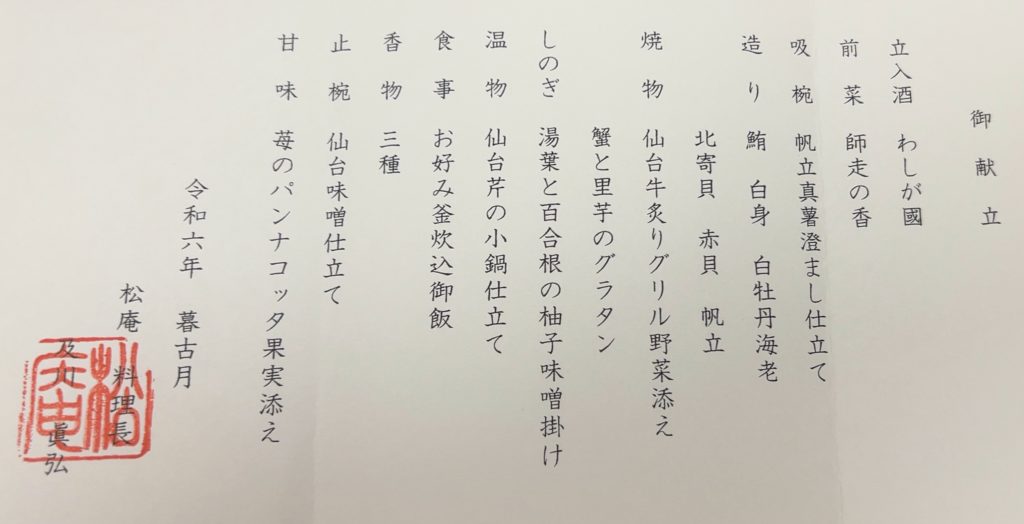 御献立
立入酒 わしが國
前菜 師走の香
吸椀 帆立真薯澄まし仕立て
造り 鮪 白身 白牡丹海老
北寄貝 赤貝 帆立
焼物 仙台牛炙りグリル野菜添え
蟹と里芋のグラタン
しのぎ 湯葉と百合根の柚子味噌掛け
温物 仙台芹の小鍋仕立て
食事 お好み釜炊込御飯
香物 三種
止椀 仙台味噌仕立て
甘味 苺のパンナコッタ果実添え
令和六年 暮古月
松庵 料理長
及川 眞弘
松庵